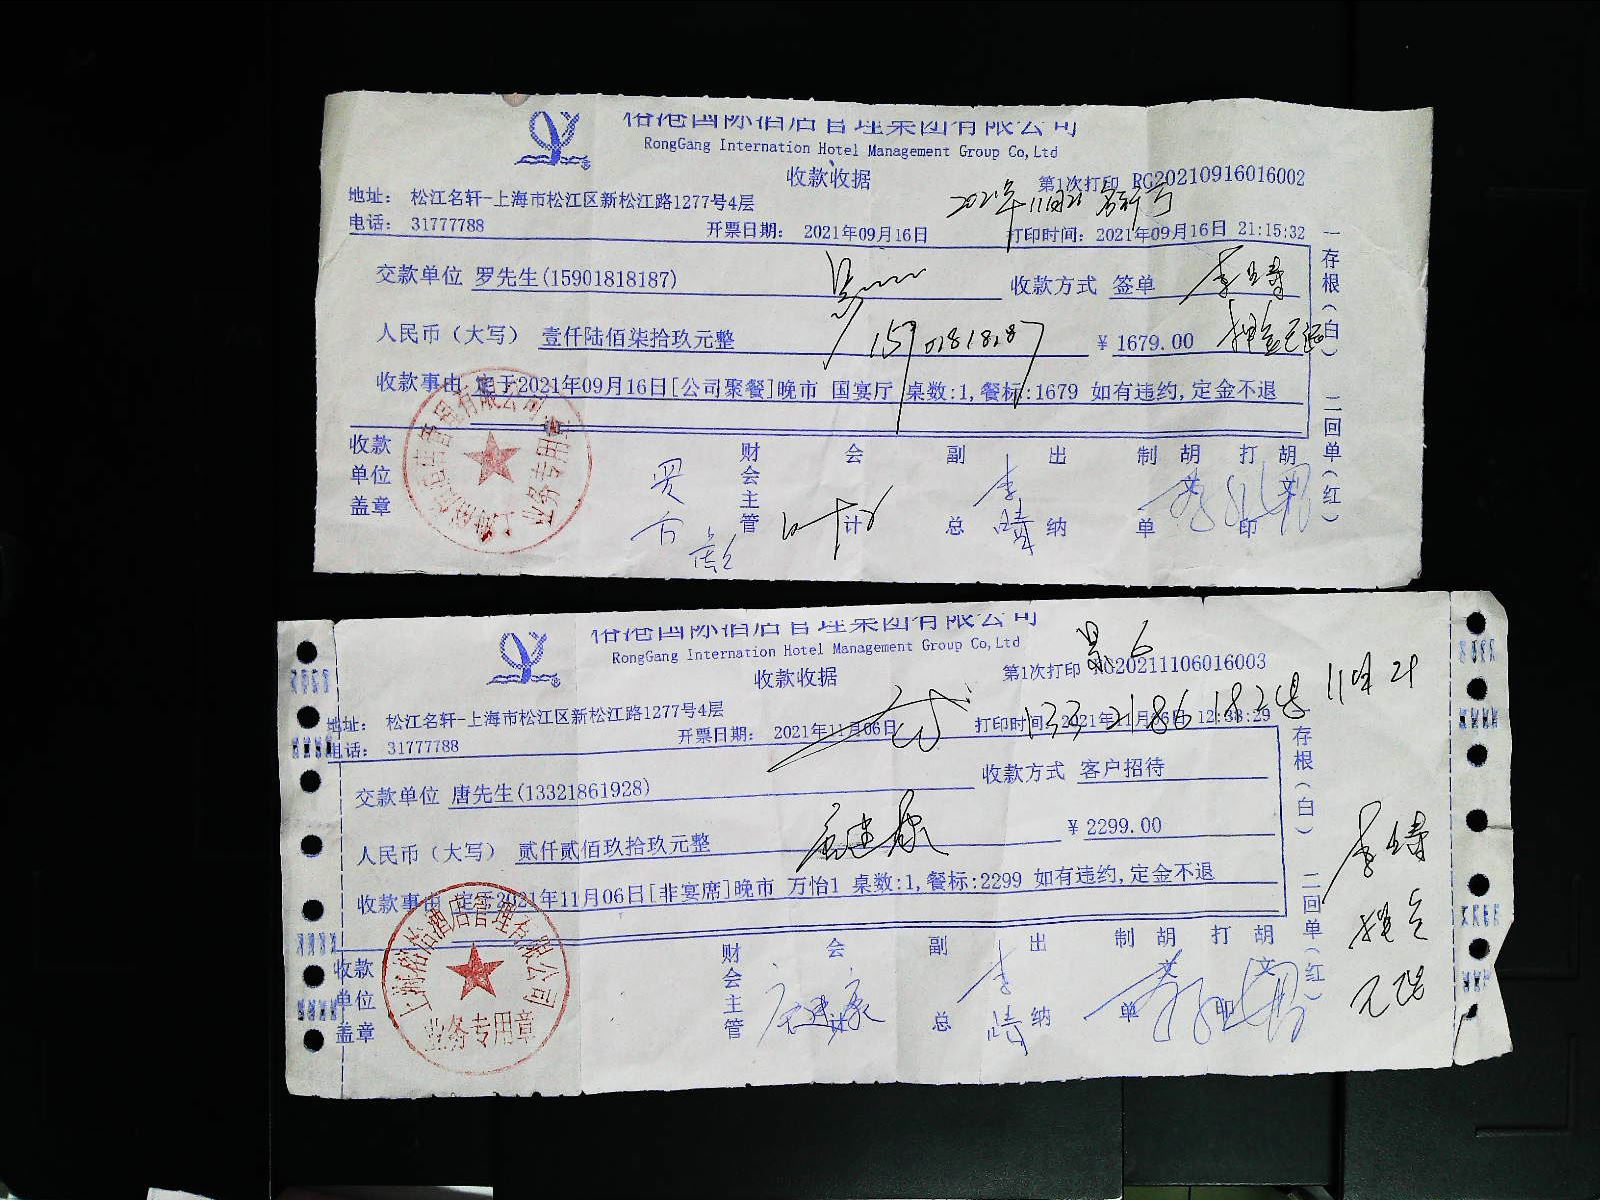 裕港国际酒店管理集团有限公司
RongGang Internation Hotel Management Group Co,Ltd
收款收据
第1次打印 RG20210916016002
地址： 松江名轩-上海市松江区新松江路1277号4层
电话： 31777788
开票日期： 2021年09月16日
打印时间：2021年09月16日 21:15:32
交款单位 罗先生(15901818187)
收款方式 签单
人民币（大写） 壹仟陆佰柒拾玖元整
￥1679.00
收款事由 定于2021年09月16日[公司聚餐]晚市 国宴厅 桌数:1,餐标:1679 如有违约,定金不退
一存根（白） 二回单（红）
收款单位盖章
财会主管
会计
副总
出纳
制单
胡文
打印
胡文
业务专用章
裕港国际酒店管理集团有限公司
RongGang Internation Hotel Management Group Co,Ltd
收款收据
第1次打印 RG20211106016003
地址： 松江名轩-上海市松江区新松江路1277号4层
电话： 31777788
开票日期： 2021年11月06日
打印时间：2021年11月06日 12:38:29
交款单位 唐先生(13321861928)
收款方式 客户招待
唐建康
人民币（大写） 贰仟贰佰玖拾玖元整
￥2299.00
收款事由 定于2021年11月06日[非宴席]晚市 万怡1 桌数:1,餐标:2299 如有违约,定金不退
一存根（白） 二回单（红）
收款单位盖章
财会主管
会计
唐建康
副总
出纳
制单
胡文
打印
胡文
业务专用章